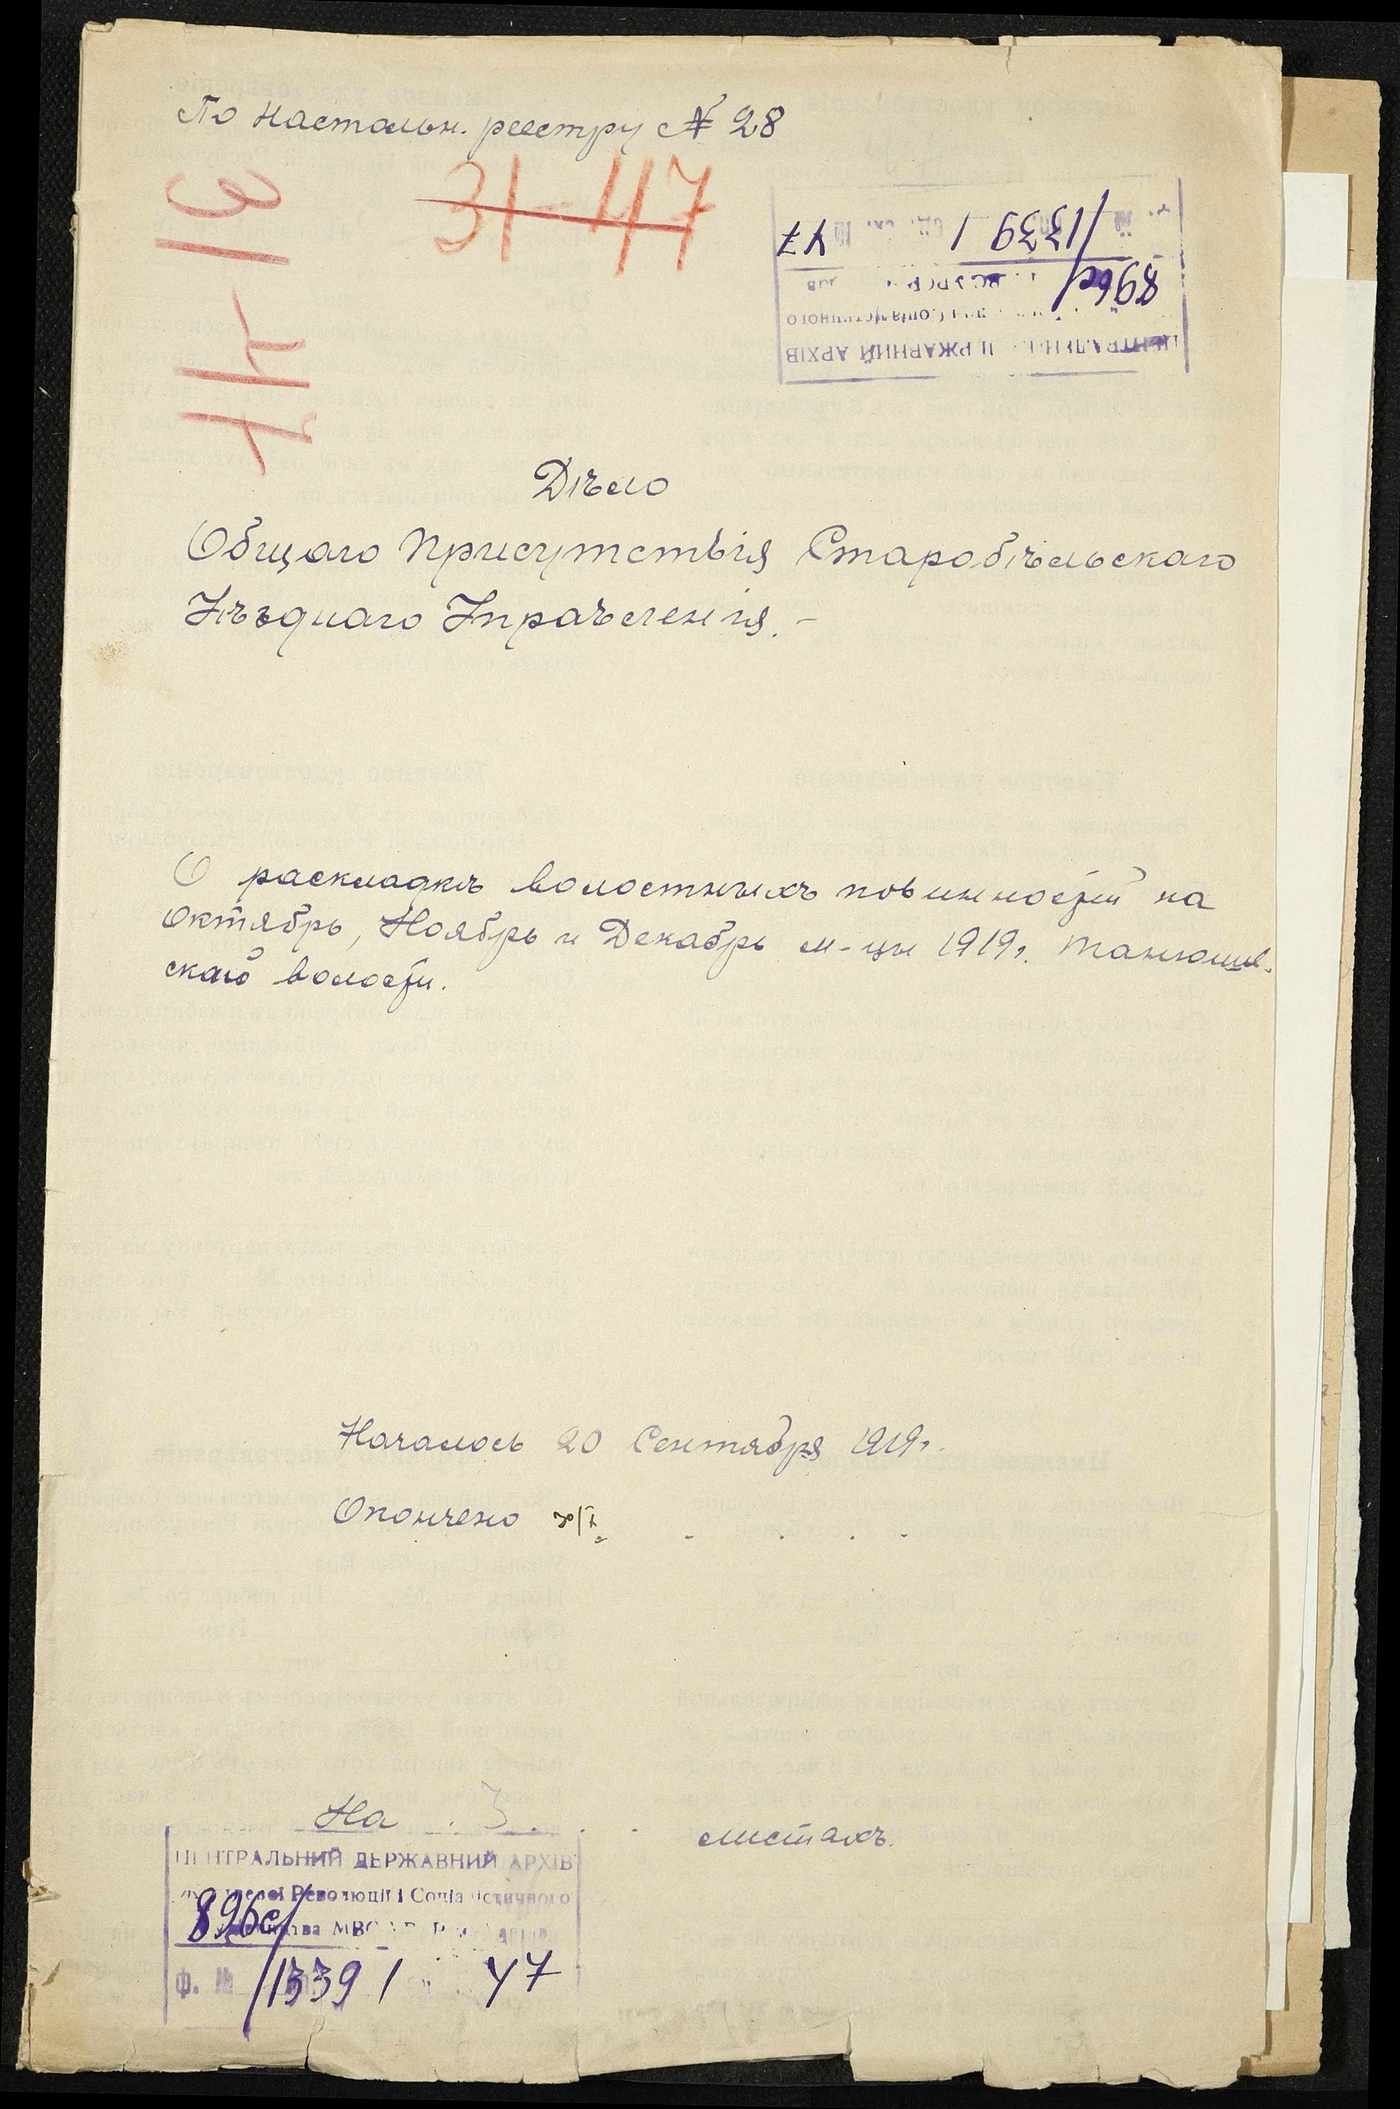 По настольн. реестру № 28
31-47
31-47
1339 1 47
896с/
ЦЕНТРАЛЬНИЙ ДЕРЖАВНИЙ АРХІВ
Дѣло
Общаго Присутствія Старобѣльскаго
Уѣзднаго Управленія.-
О раскладкѣ волостныхъ повинностей на
Октябрь, Ноябрь и Декабрь м-цы 1919 г. Танюшев-
ской волости.
Началось 20 Сентября 1919 г.
Окончено
На 3 листахъ.
ЦЕНТРАЛЬНИЙ ДЕРЖАВНИЙ АРХІВ
Революції і Соціалістичного
896с/
ф. № 1339 1 47